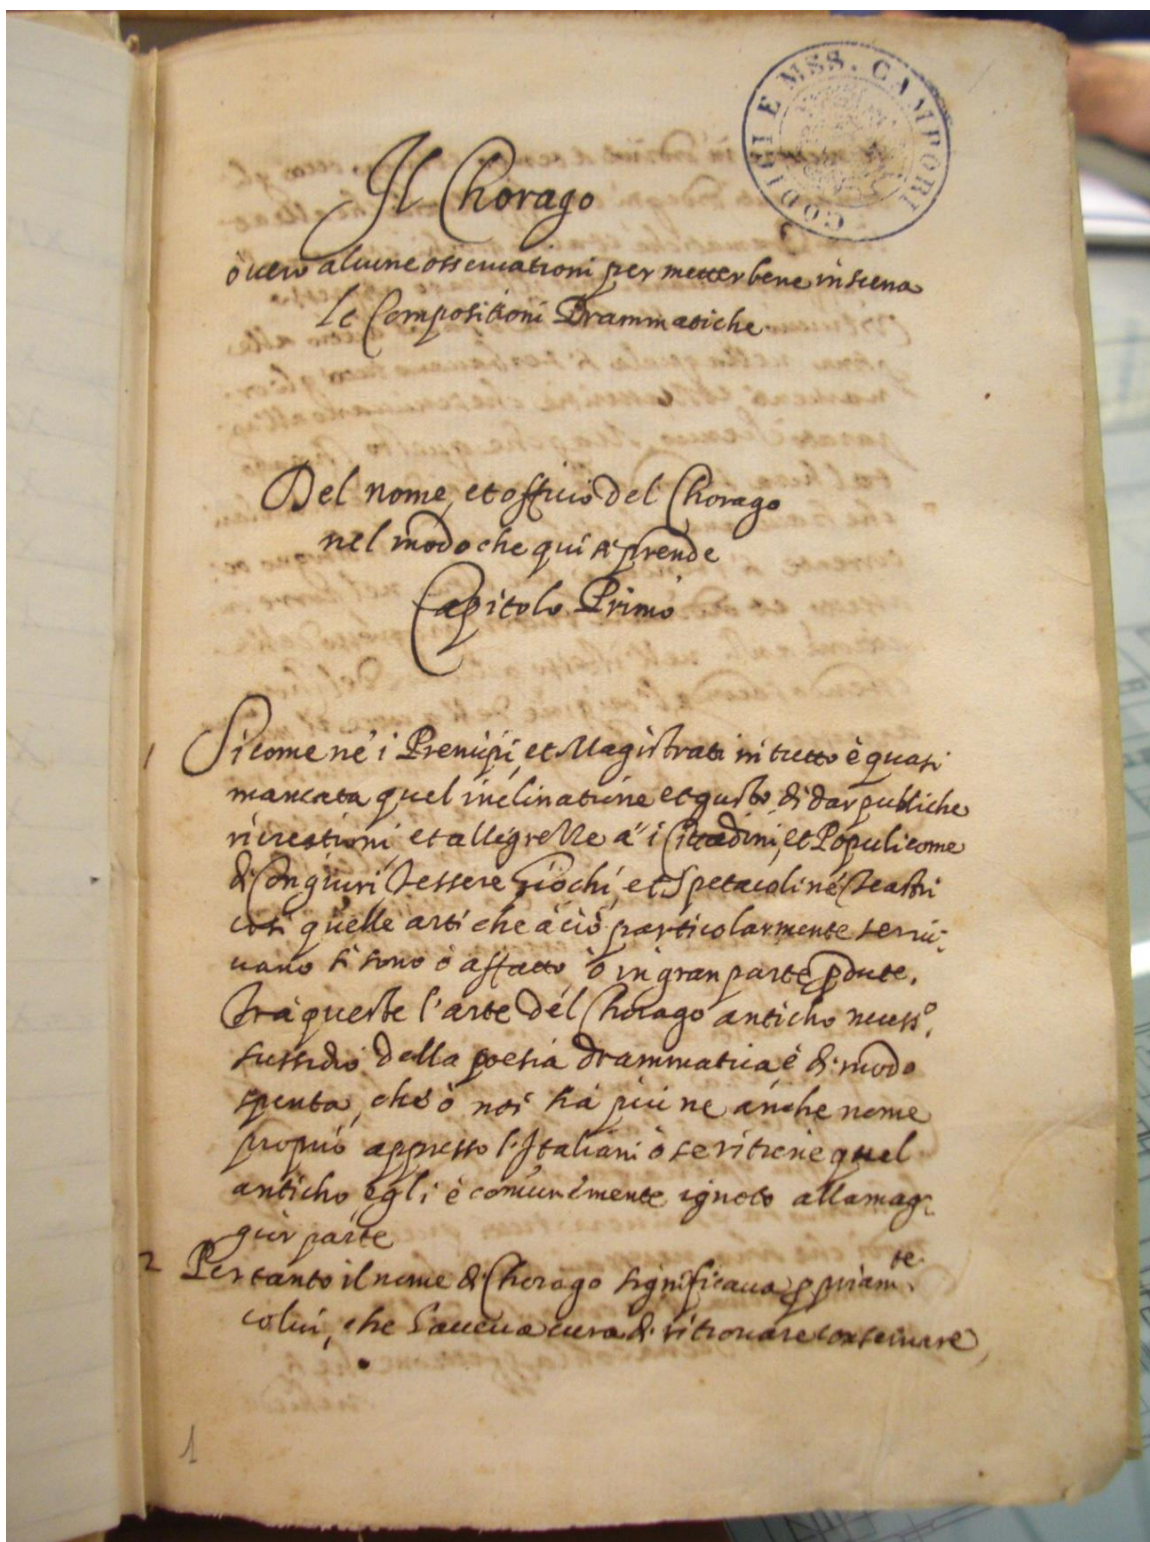 CODICI E MSS. CAMPORI
Il Chorago
ò vero alcune osservationi per metter bene in scena
le Compositioni Drammatiche.
Del nome, et officio del Chorago
nel modo che qui si prende
Capitolo Primo
1 Sicome ne' i Prencipi, et Magistrati in tutto è quasi
mancata quel inclinatione et gusto di dar publiche
ricreationi et allegrezze a' i Cittadini, et Populi come
di Congiarii Tessere Giochi, et Spetacoli né Teatri
così quelle arti che à ciò particolarmente servi-
vano si sono ò affatto, ò in gran parte pdute.
Trà queste l'arte del Chorago anticho necess.º
sussidio della poesia drammatica è di modo
spenta, che ò non hà più ne anche nome
proprio appresso l'Italiani ò se ritiene quel
anticho, egli è comunemente ignoto alla mag-
gior parte
2 Per tanto il nome di Chorago significava ppriam.te
colui, che haveva cura di ritrovare conservare,
1